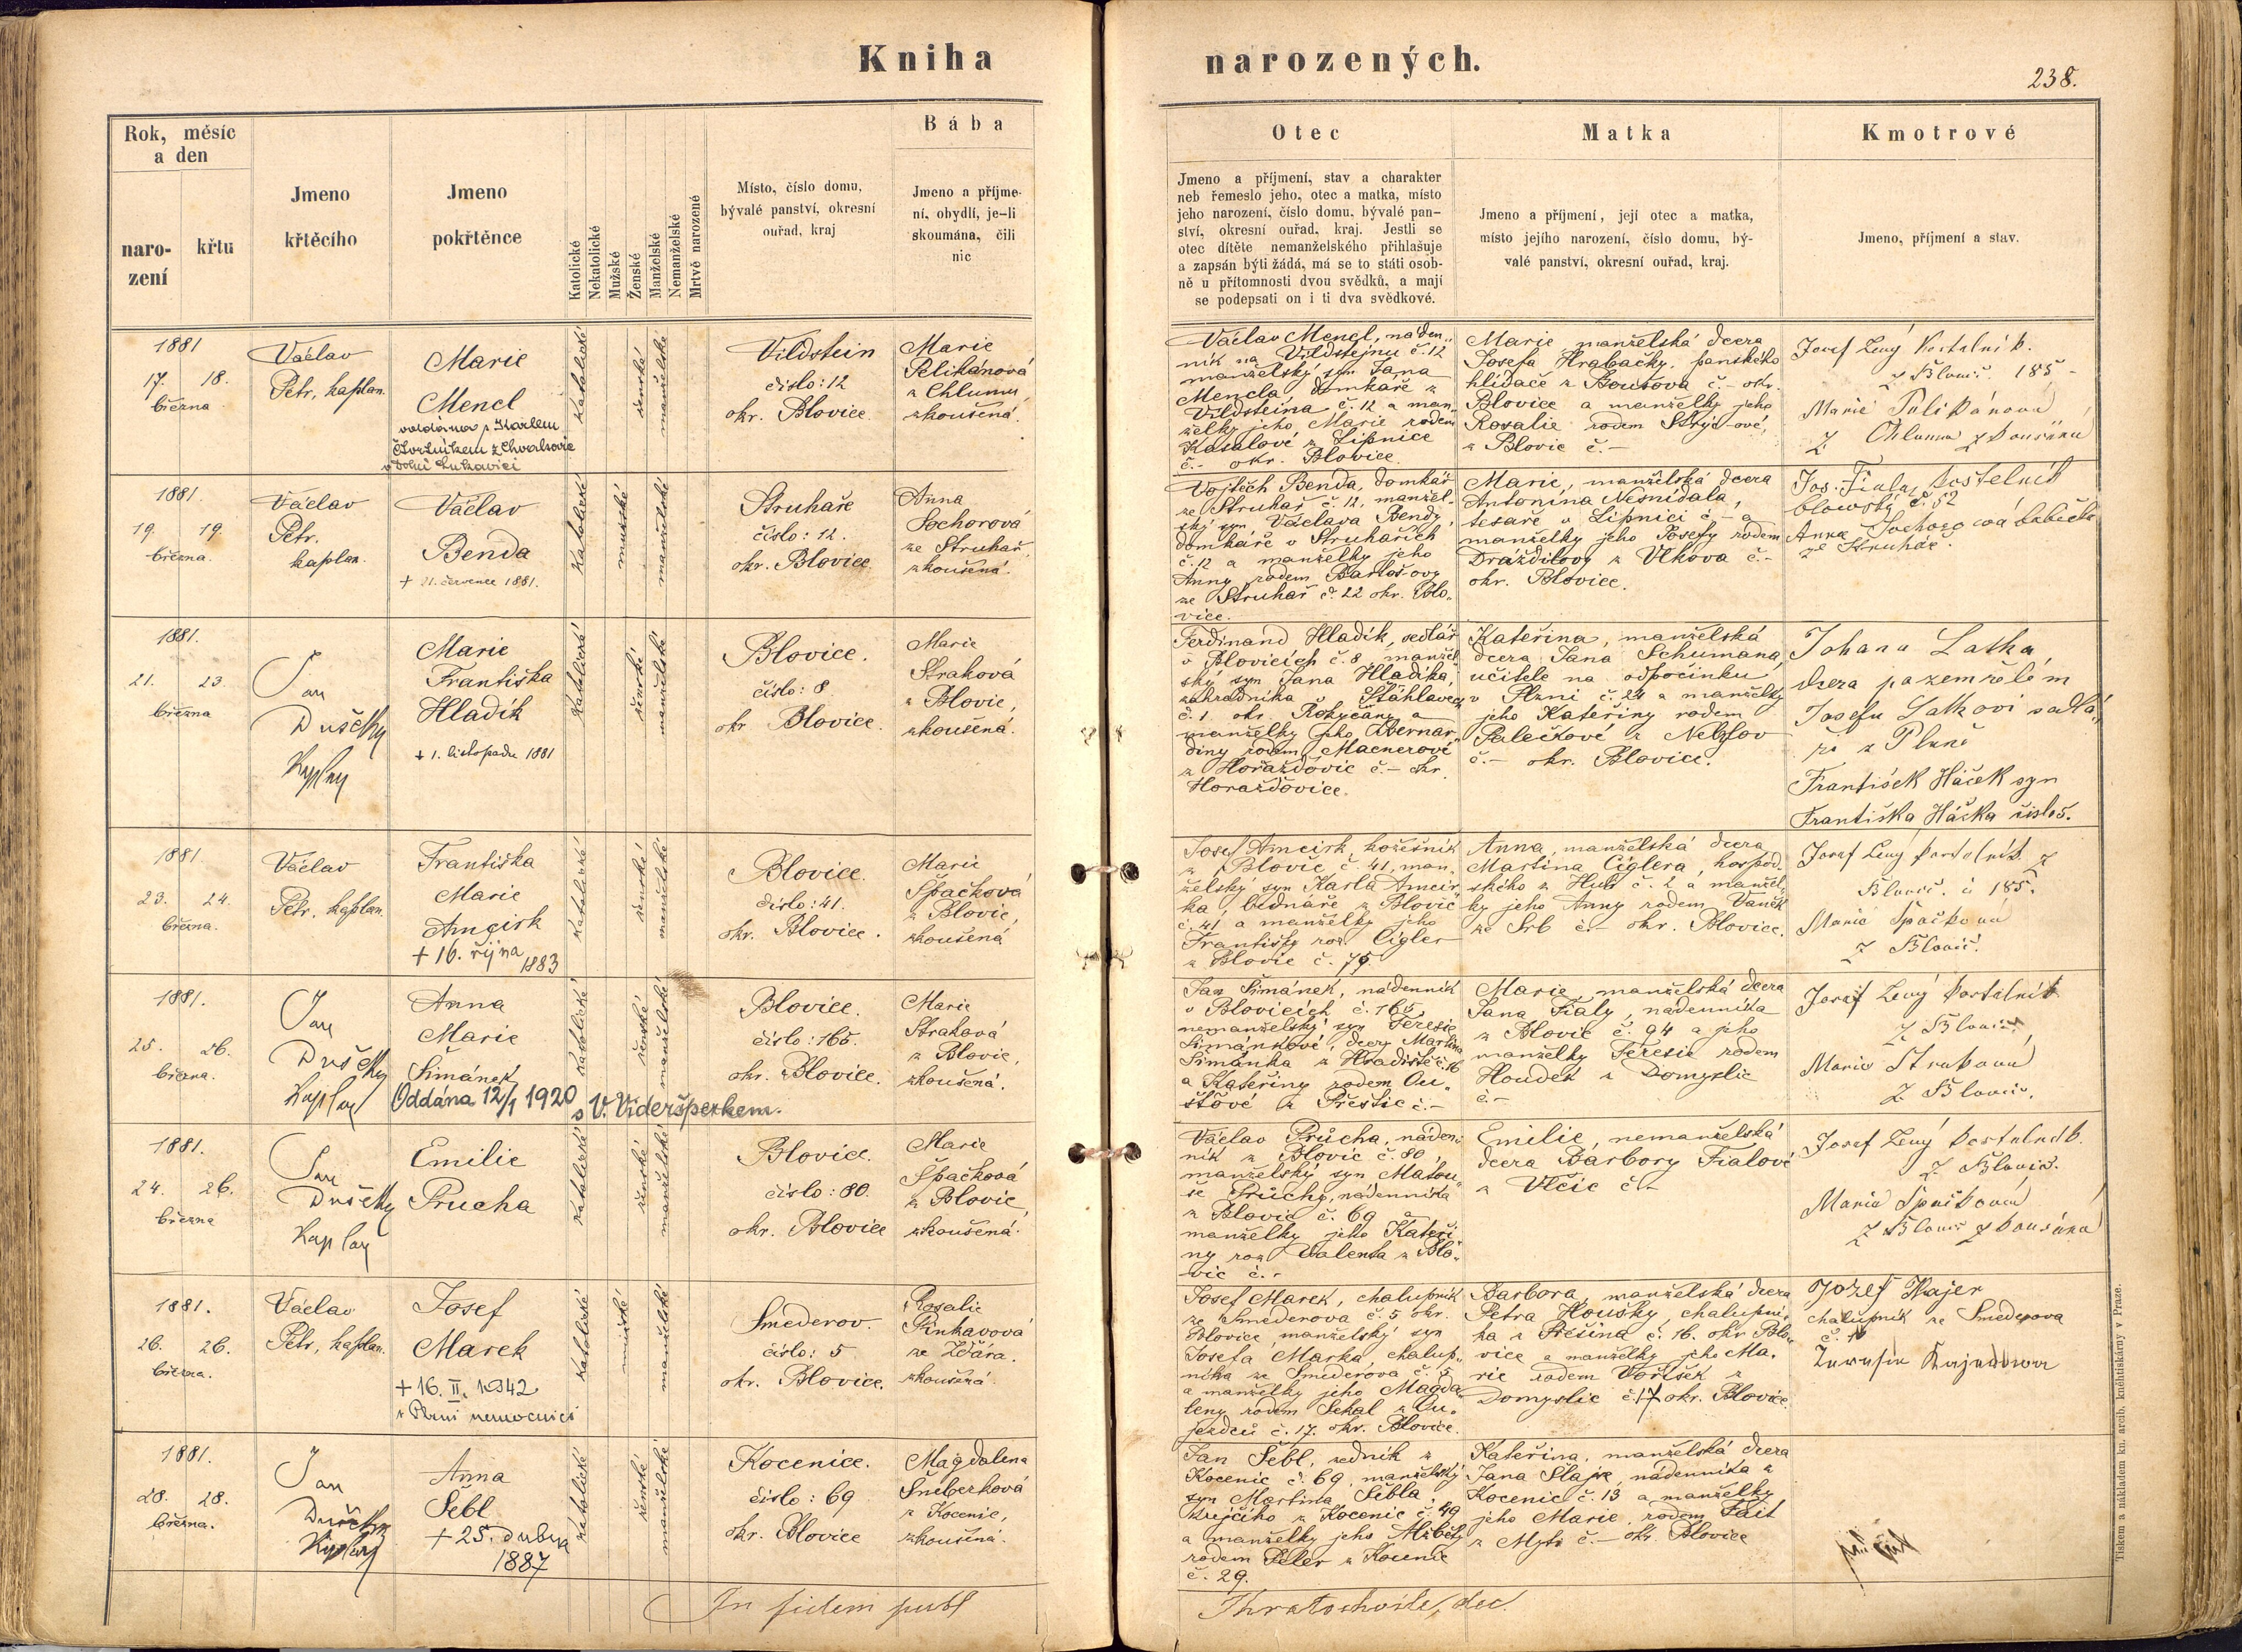 Kniha narozených.
238.
Rok, měsíc
a den
naro-
zení
křtu
Jmeno
křtěcího
Jmeno
pokřtěnce
Katolické
Nekatolické
Mužské
Ženské
Manželské
Nemanželské
Mrtvě narozené
Místo, číslo domu,
bývalé panství, okresní
ouřad, kraj
Bába
Jmeno a příjme-
ní, obydlí, je-li
skoumána, čili
nic
Otec
Jmeno a příjmení, stav a charakter
neb řemeslo jeho, otec a matka, místo
jeho narození, číslo domu, bývalé pan-
ství, okresní ouřad, kraj. Jestli se
otec dítěte nemanželského přihlašuje
a zapsán býti žádá, má se to státi osob-
ně u přítomnosti dvou svědků, a mají
se podepsati on i ti dva svědkové.
Matka
Jmeno a příjmení, její otec a matka,
místo jejího narození, číslo domu, bý-
valé panství, okresní ouřad, kraj.
Kmotrové
Jmeno, příjmení a stav.
1881
17. 18.
března
Václav
Petr, kaplan.
Marie
Mencl
Karlem
z Chvalenic
katolické
ženské
manželské
Vildstein
číslo: 12
okr. Blovice.
Marie
Pelikánová
z Chlumu
zkoušená.
Václav Mencl, náden-
ník na Vildštejnu č. 12
manželský syn Jana
Mencla, domkáře z
Vildšteina č. 12 a man-
želky jeho Marie rodem
Kasalové z Lipnice
č. - okr. Blovice.
Marie manželská dcera
Josefa Hrabačky, panského
hlídače z Boušova č. - okr.
Blovice a manželky jeho
Rosalie rodem Strýc-ové,
z Blovic č. -
Josef Lený Kostelník.
z Blovic. 185
Marie Pelikánová
z Chlumu zkoušená
1881.
19. 19.
března.
Václav
Petr.
kaplan.
Václav
Benda
+ 21. července 1881.
katolické
mužské
manželské
Struhaře
číslo: 12.
okr. Blovice
Anna
Sochorová
ze Struhař,
zkoušená.
Vojtěch Benda, domkář
ze Struhař č. 12, manžel-
ský syn Václava Bendy,
domkáře v Struhařích
č. 12 a manželky jeho
Anny rodem Bartoš-ovy
ze Struhař č. 22 okr. Blo-
vice.
Marie, manželská dcera
Antonína Nesnídala,
tesaře v Lipnici č - a
manželky jeho Josefy rodem
Dráždilovy z Vlkova č. -
okr. Blovice.
Jos. Fiala, kostelník
blowský č. 52
Anna Sochorová babička
ze Struhař.
1881.
21. 23.
března
Jan
Dušetky
Kaplan
Marie
Františka
Hladík
+ 1. listopadu 1881
katolické
ženské
manželské
Blovice.
číslo: 8.
okr Blovice.
Marie
Straková
z Blovic,
zkoušená.
Ferdinand Hladík, sedlář
v Blovicích č. 8, manžel-
ský syn Jana Hladíka,
zahradníka v Šťáhlavech
č. 1 okr. Rokyčany a
manželky jeho Bernar-
diny rodem Macnerové
z Horažďovic č. - okr.
Horažďovice.
Kateřina, manželská
dcera Jana Schumana,
učitele na odpočinku
v Plzni č. 24 a manželky
jeho Kateřiny rodem
Palečkové z Nebřov
č. - okr. Blovice.
Johana Latka,
dcera po zemřelém
Josefu Latkovi sedlá-
ři z Plané
František Háček syn
Františka Háčka číslo 5.
1881.
23. 24.
března.
Václav
Petr, kaplan.
Františka
Marie
Amcirk
+ 16. října 1883
katolické
ženské
manželské
Blovice.
číslo: 41.
okr. Blovice.
Marie
Špačková
z Blovic,
zkoušená
Josef Amcirk, kožešník
z Blovic č. 41, man-
želský syn Karla Amcir-
ka bednáře z Blovic
č. 41 a manželky jeho
Františky roz. Cigler
z Blovic č. 75.
Anna, manželská dcera
Martina Ciglera, hospod-
ského z Hub č. 2 a manžel-
ky jeho Anny rodem Vaněk
ze Srb č. - okr. Blovice.
Josef Lený kostelník z
Blovic. č 185.
Marie Špačková
z Blovic.
1881.
25. 26.
března.
Jan
Dušetky
Kaplan
Anna
Marie
Šimánek
Oddána 12/1 1920 s V. Videršperkem.
katolické
ženské
manželské
Blovice.
číslo: 165.
okr. Blovice.
Marie
Straková
z Blovic,
zkoušená.
Jan Šimánek, nádenník
v Blovicích č. 165,
nemanželský syn Teresie
Šimánkové, dcery Martina
Šimánka z Hradiště č. 16
a Kateřiny rodem Ou-
štové z Přeštic č. -
Marie, manželská dcera
Jana Fialy, nádenníka
z Blovic č. 94 a jeho
manželky Teresie rodem
Houdek z Domyslic
č. -
Josef Lený kostelník
z Blovic,
Marie Straková
z Blovic.
1881.
24. 26.
března
Jan
Dušetky
Kaplan
Emilie
Průcha
katolické
ženské
manželské
Blovice.
číslo: 80.
okr. Blovice
Marie
Špačková
z Blovic,
zkoušená.
Václav Průcha, náden-
ník z Blovic č. 80,
manželský syn Matou-
še Průchy, nádenníka
z Blovic č. 69 a
manželky jeho Kateři-
ny roz Valenta z Blo-
vic č. -
Emilie, nemanželská
dcera Barbory Fialové
z Vlčic č -
Josef Lený kostelník.
z Blovic.
Marie Špačková
z Blovic zkoušená
1881.
26. 26.
března.
Václav
Petr, kaplan.
Josef
Marek
+ 16. II. 1942
v Plzni nemocnici
katolické
mužské
manželské
Smederov.
číslo: 5
okr. Blovice.
Rosalie
Pinkavová
ze Žďára.
zkoušená.
Josef Marek, chalupník
ze Smederova č. 5 okr.
Blovice manželský syn
Josefa Marka, chalup-
níka ze Smederova č. 5
a manželky jeho Magda-
leny rodem Sekal z Ou-
jezdců č. 17. okr. Blovice.
Barbora, manželská dcera
Petra Houšky, chalupní-
ka z Přešina č. 16. okr Blo-
vice a manželky jeho Ma-
rie rodem Voříšek z
Domyslic č. 17 okr. Blovice.
Jozef Kajer
chalupník ze Smederova
1881.
28. 28.
března.
Jan
Dušetky
Kaplan
Anna
Šebl
+ 25. dubna
1887
katolické
ženské
manželské
Kocenice.
číslo: 69
okr. Blovice
Magdalena
Šneberková
z Kocenic,
zkoušená.
Jan Šebl, zedník z
Kocenic č. 69, manželský
syn Martina Šebla,
krejčího z Kocenic č. 49
a manželky jeho Alžběty
rodem Peler z Kocenic
č. 29.
Kateřina, manželská dcera
Jana Slajse, nádenníka z
Kocenic č. 13 a manželky
jeho Marie, rodem Fait
z Mýti č. - okr. Blovice
In fidem publ
Thratochvile, dec.
Tiskem a nákladem kn. arcib. kněhtiskárny v Praze.